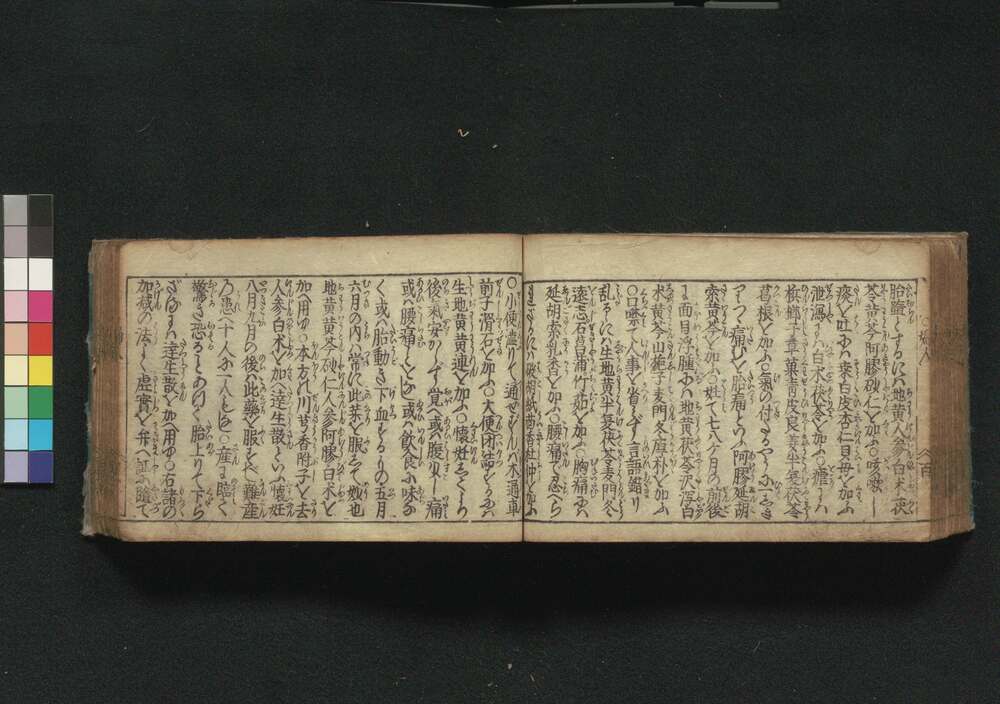 胎 するにハ地黄人参白朮茯
苓黄芩阿膠砂仁を加ふ○咳嗽し
痰を吐にハ桑白皮杏仁貝母を加ふ
泄瀉にハ白朮茯苓を加ふ○瘧にハ
檳榔子草菓青皮良姜半夏茯苓
葛根を加ふ○氣の付きるやうにつき
痛むを胎痛といふ阿膠延胡
索黄芩を加ふ○姓て七八ケ月の前後
に面目浮腫にハ地黄茯苓沢瀉白
朮黄芩山梔子麦門冬厚朴を加ふ
○口噤て人事を省らず言語錯り
乱るゝにハ生地黄半夏茯苓麦門冬
遠志石菖蒲竹茹を加ふ○胸痛にハ
延胡索乳香を加ふ○腰痛て忍へら
破胡紙茴香杜仲を加ふ
○小便澁りて通せざるにハ木通車
前子滑石を加ふ○大便閉結するにハ
生地黄黄連を加ふ○懐姙してより
後心氣安からず覚へ或ハ腹少し痛
或ハ腰痛ことあり或ハ飲食に味な
く或ハ胎動き下血するもの五月
六月の内ハ常に此薬を服して效也
地黄黄芩砂仁人参阿膠白朮を
加へ用ゆ○本方の川芎香附子を去
人参白朮を加へ達生散といふ懐姙
八九月の後ハ此藥を服すべし難産
の患へ十人が一人もなし○産に臨て
驚き恐ることあり 胎上りて下ら
ざるにハ達生散を加へ用ゆ○右諸の
加减の法よく虚實を弁へ 隨て